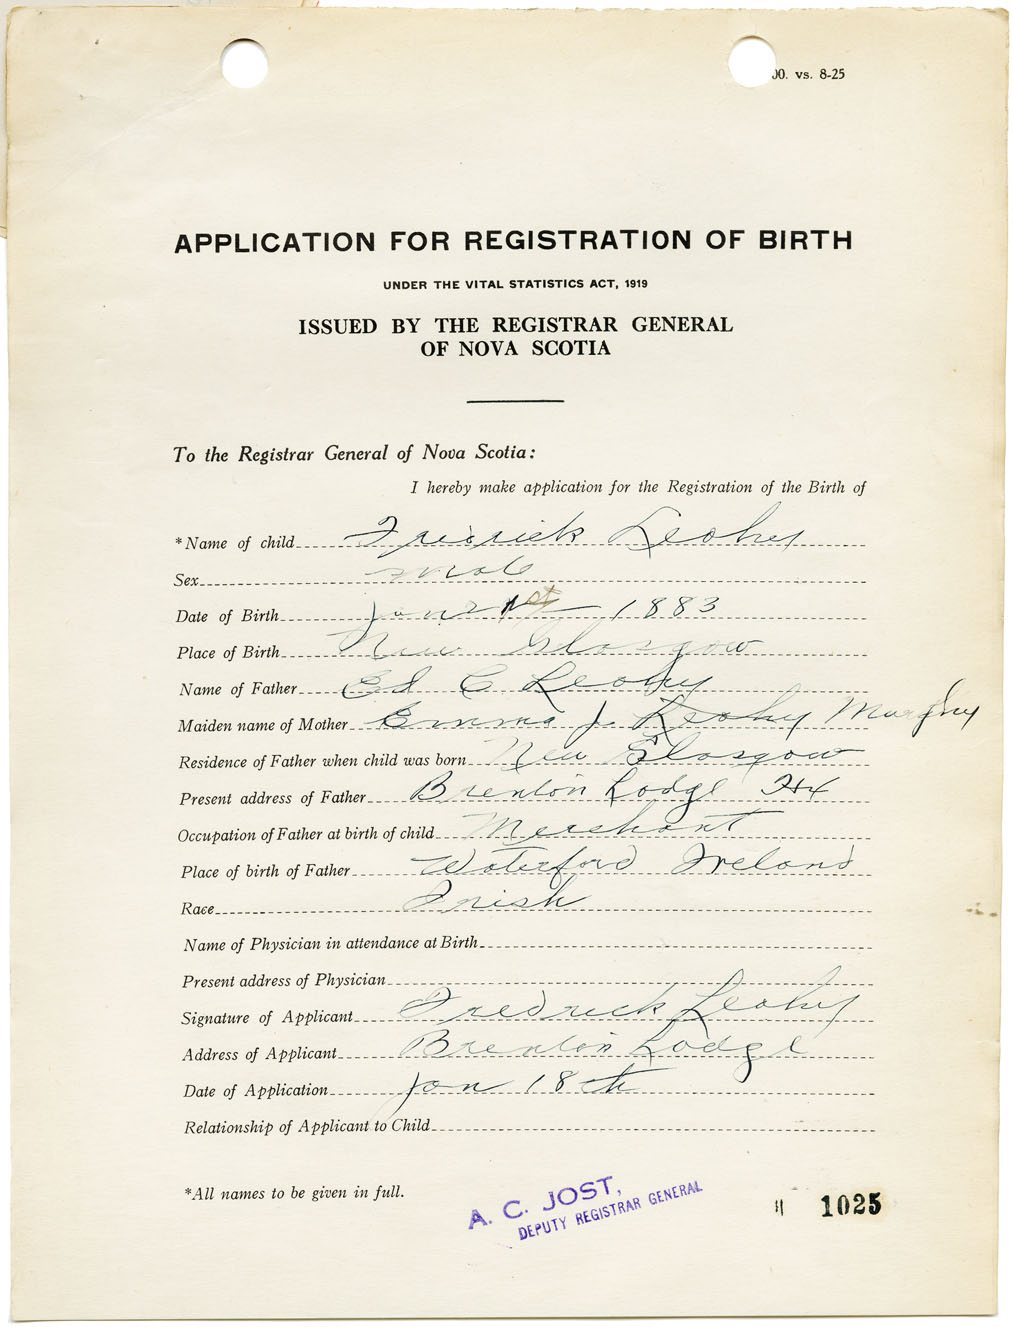 00. vs. 8-25
APPLICATION FOR REGISTRATION OF BIRTH
UNDER THE VITAL STATISTICS ACT, 1919
ISSUED BY THE REGISTRAR GENERAL
OF NOVA SCOTIA
To the Registrar General of Nova Scotia:
I hereby make application for the Registration of the Birth of
*Name of child Fredrick Leahy
Sex male
Date of Birth Jan 1st 1883
Place of Birth New Glasgow
Name of Father Ed C Leahy
Maiden name of Mother Emma J. Leahy Murphy
Residence of Father when child was born New Glasgow
Present address of Father Brenton Lodge Hx
Occupation of Father at birth of child Merchant
Place of birth of Father Waterford Ireland
Race Irish
Name of Physician in attendance at Birth
Present address of Physician
Signature of Applicant Fredrick Leahy
Address of Applicant Brenton Lodge
Date of Application Jan 18th
Relationship of Applicant to Child
*All names to be given in full.
A. C. JOST,
DEPUTY REGISTRAR GENERAL
1025